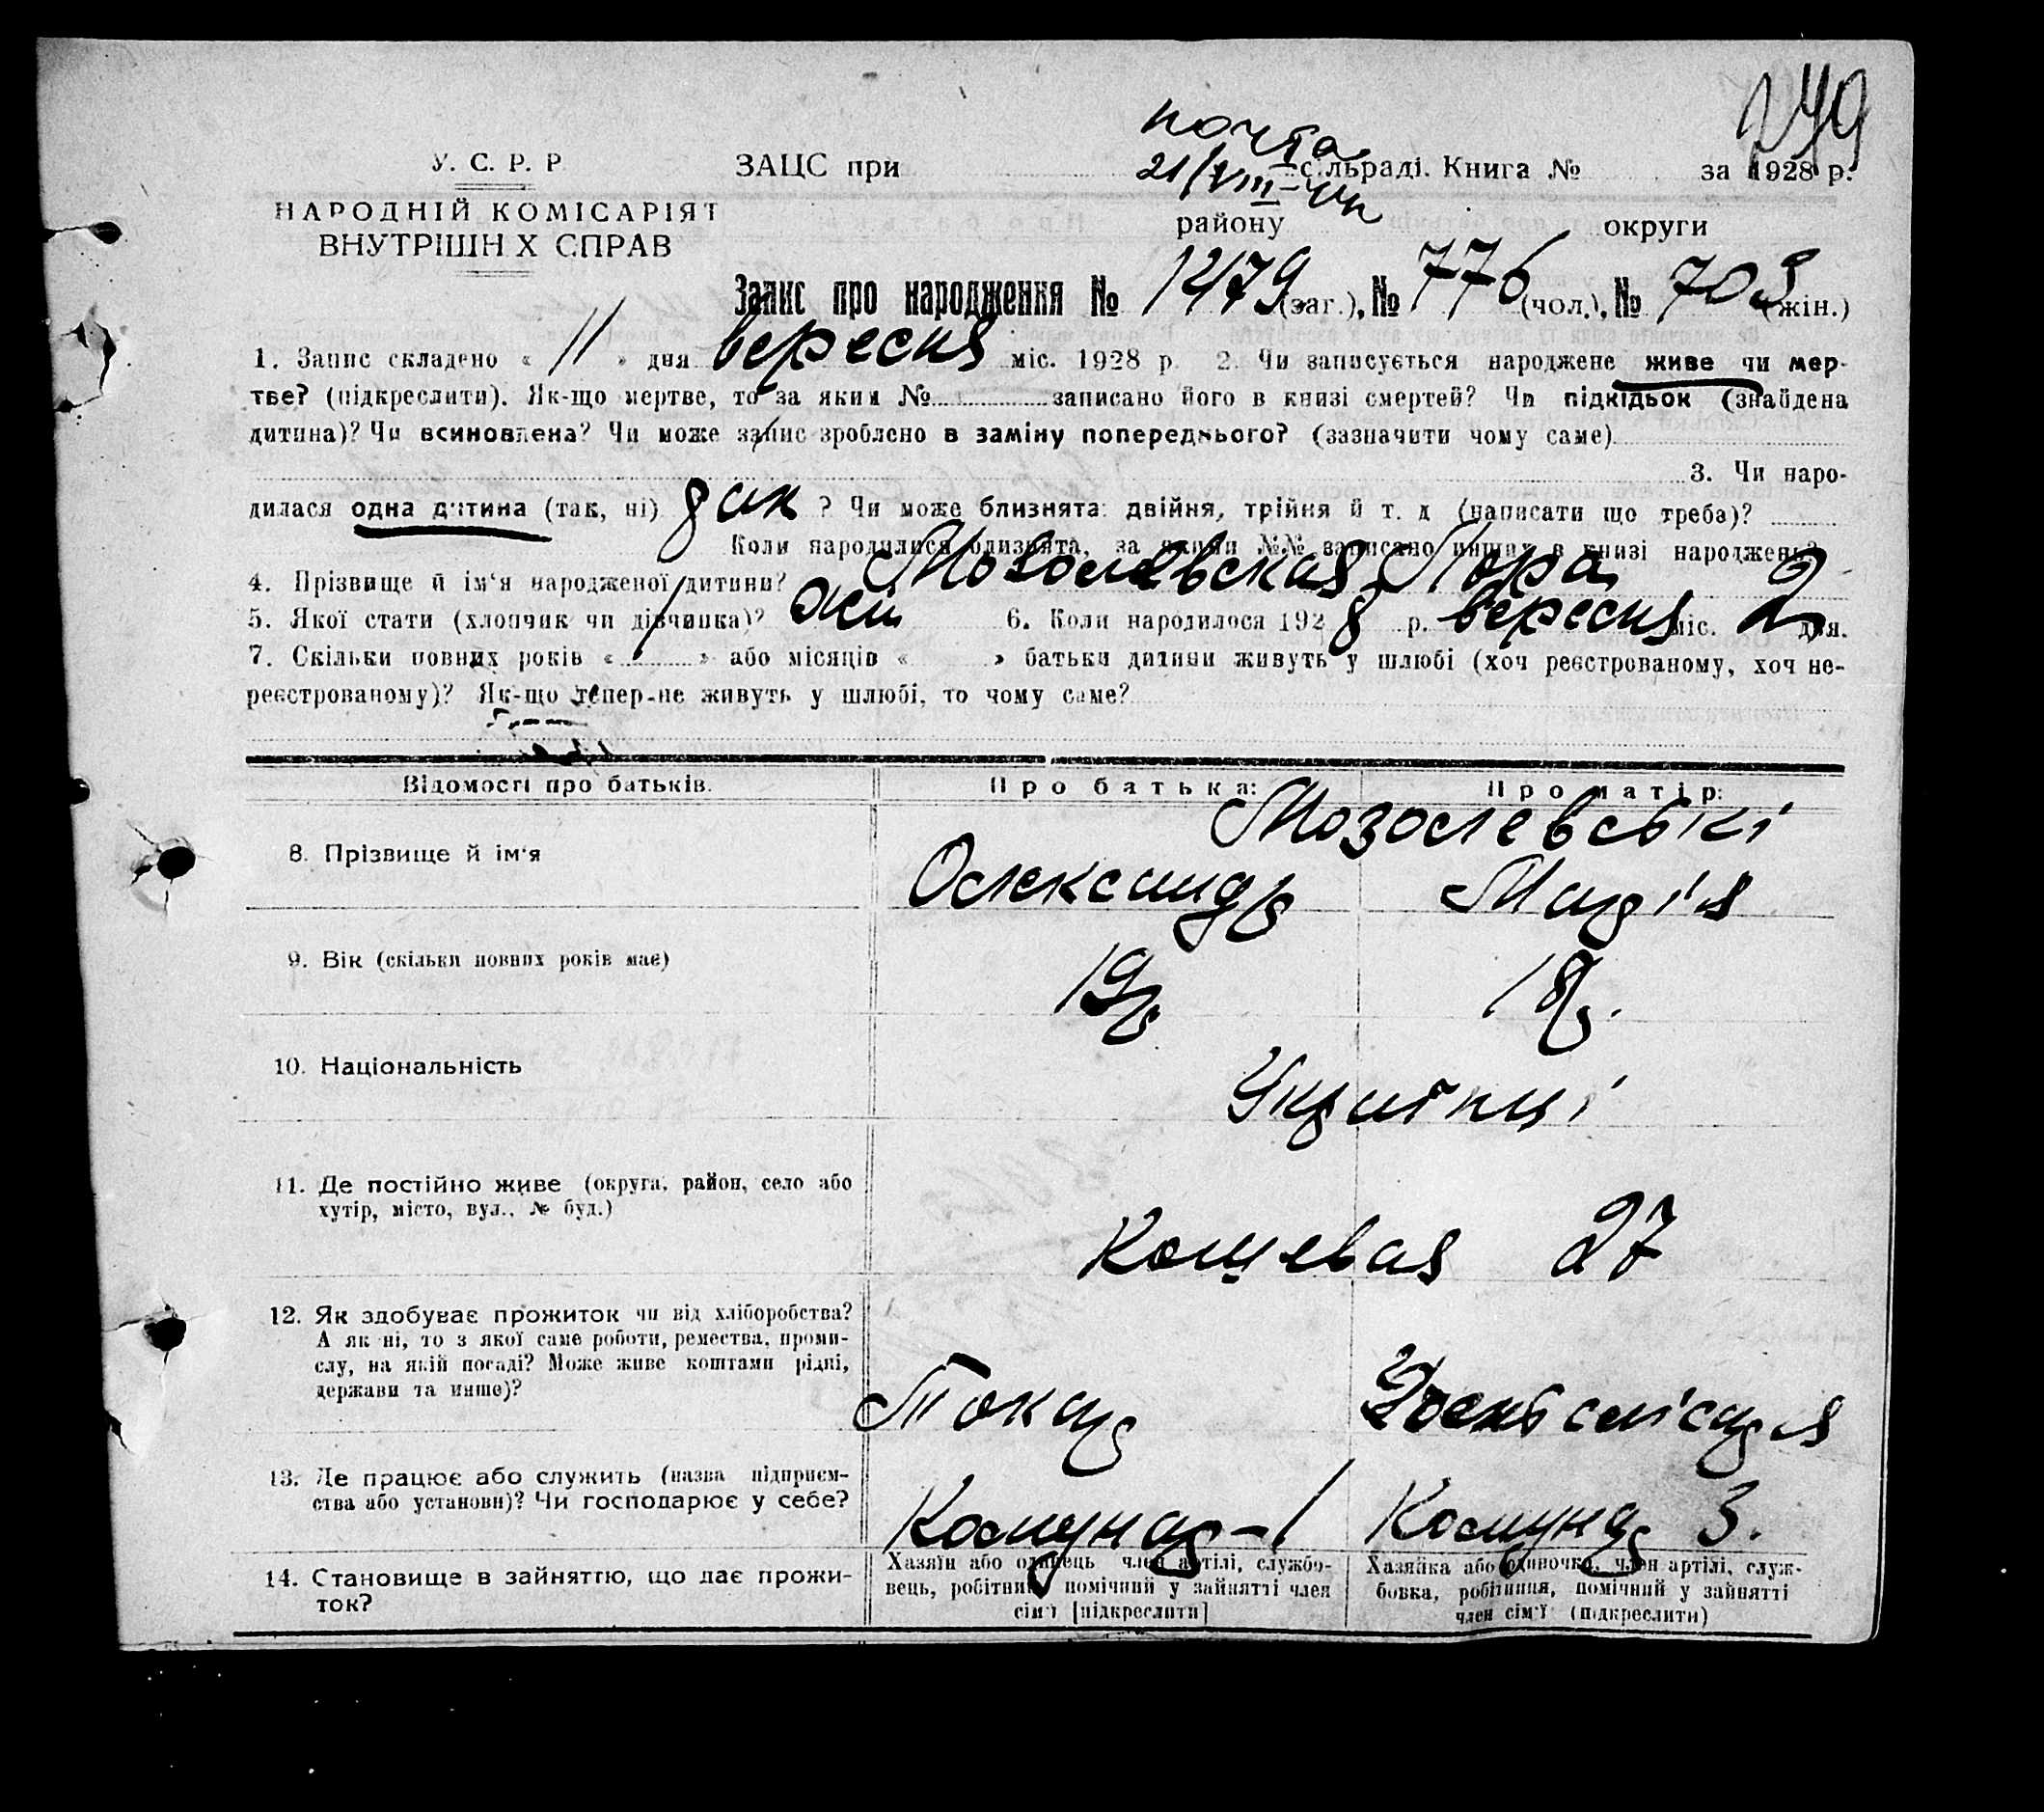 279
почта
21/VIII-
У. С. Р. Р
ЗАЦС при сільраді. Книга № за 1928 р.
НАРОДНІЙ КОМІСАРІЯТ
ВНУТРІШН Х СПРАВ
району округи
Запис про народження № 1479 (заг.), № 776 (чол.), № 703 (жін.)
1. Запис складено « 11 » дня вересня міс. 1928 р. 2. Чи записується народжене живе чи мер-
тве? (підкреслити). Як-що мертве, то за яким № записано його в книзі смертей? Чи підкідьок (знайдена
дитина)? Чи всиновлена? Чи може запис зроблено в заміну попереднього? (зазначити чому саме)
3. Чи наро-
дилася одна дитина (так, ні) ? Чи може близнята: двійня, трійня й т. д (написати що треба)?
Коли народилися близнята, за якими №№ записано инших в книзі народжень?
4. Прізвище й ім‘я народженої дитини? Мозолевская
5. Якої стати (хлопчик чи дівчинка)? жін 6. Коли народилося 1928 р. вересня міс. 2 дня.
7. Скільки повних років « 1 » або місяців « » батьки дитини живуть у шлюбі (хоч реєстрованому, хоч не-
реєстрованому)? Як-що тепер-не живуть у шлюбі, то чому саме?
Відомості про батьків. Про батька: Про матір:
Мозолевські
8. Прізвище й ім‘я Олександр Марія
9. Вік (скільки повних років має) 19р 18р.
10. Національність Українці
11. Де постійно живе (округа, район, село або
хутір, місто, вул., № буд.)
Кошевая 27
12. Як здобуває прожиток чи від хліборобства?
А як ні, то з якої саме роботи, ремества, проми-
слу, на якій посаді? Може живе коштами рідні,
держави та инше)?
Токар
13. Де працює або служить (назва підприєм-
ства або установи)? Чи господарює у себе?
Комунар-1 Комунар 3.
14. Становище в зайняттю, що дає прожи-
ток?
Хазяїн або одинець член артілі, службо-
вець, робітник, помічний у зайнятті член
сім‘ї [підкреслити]
Хазяйка або одиночка, член артілі, служ-
бовка, робітниця, помічний у зайнятті
член сім‘ї (підкреслити)